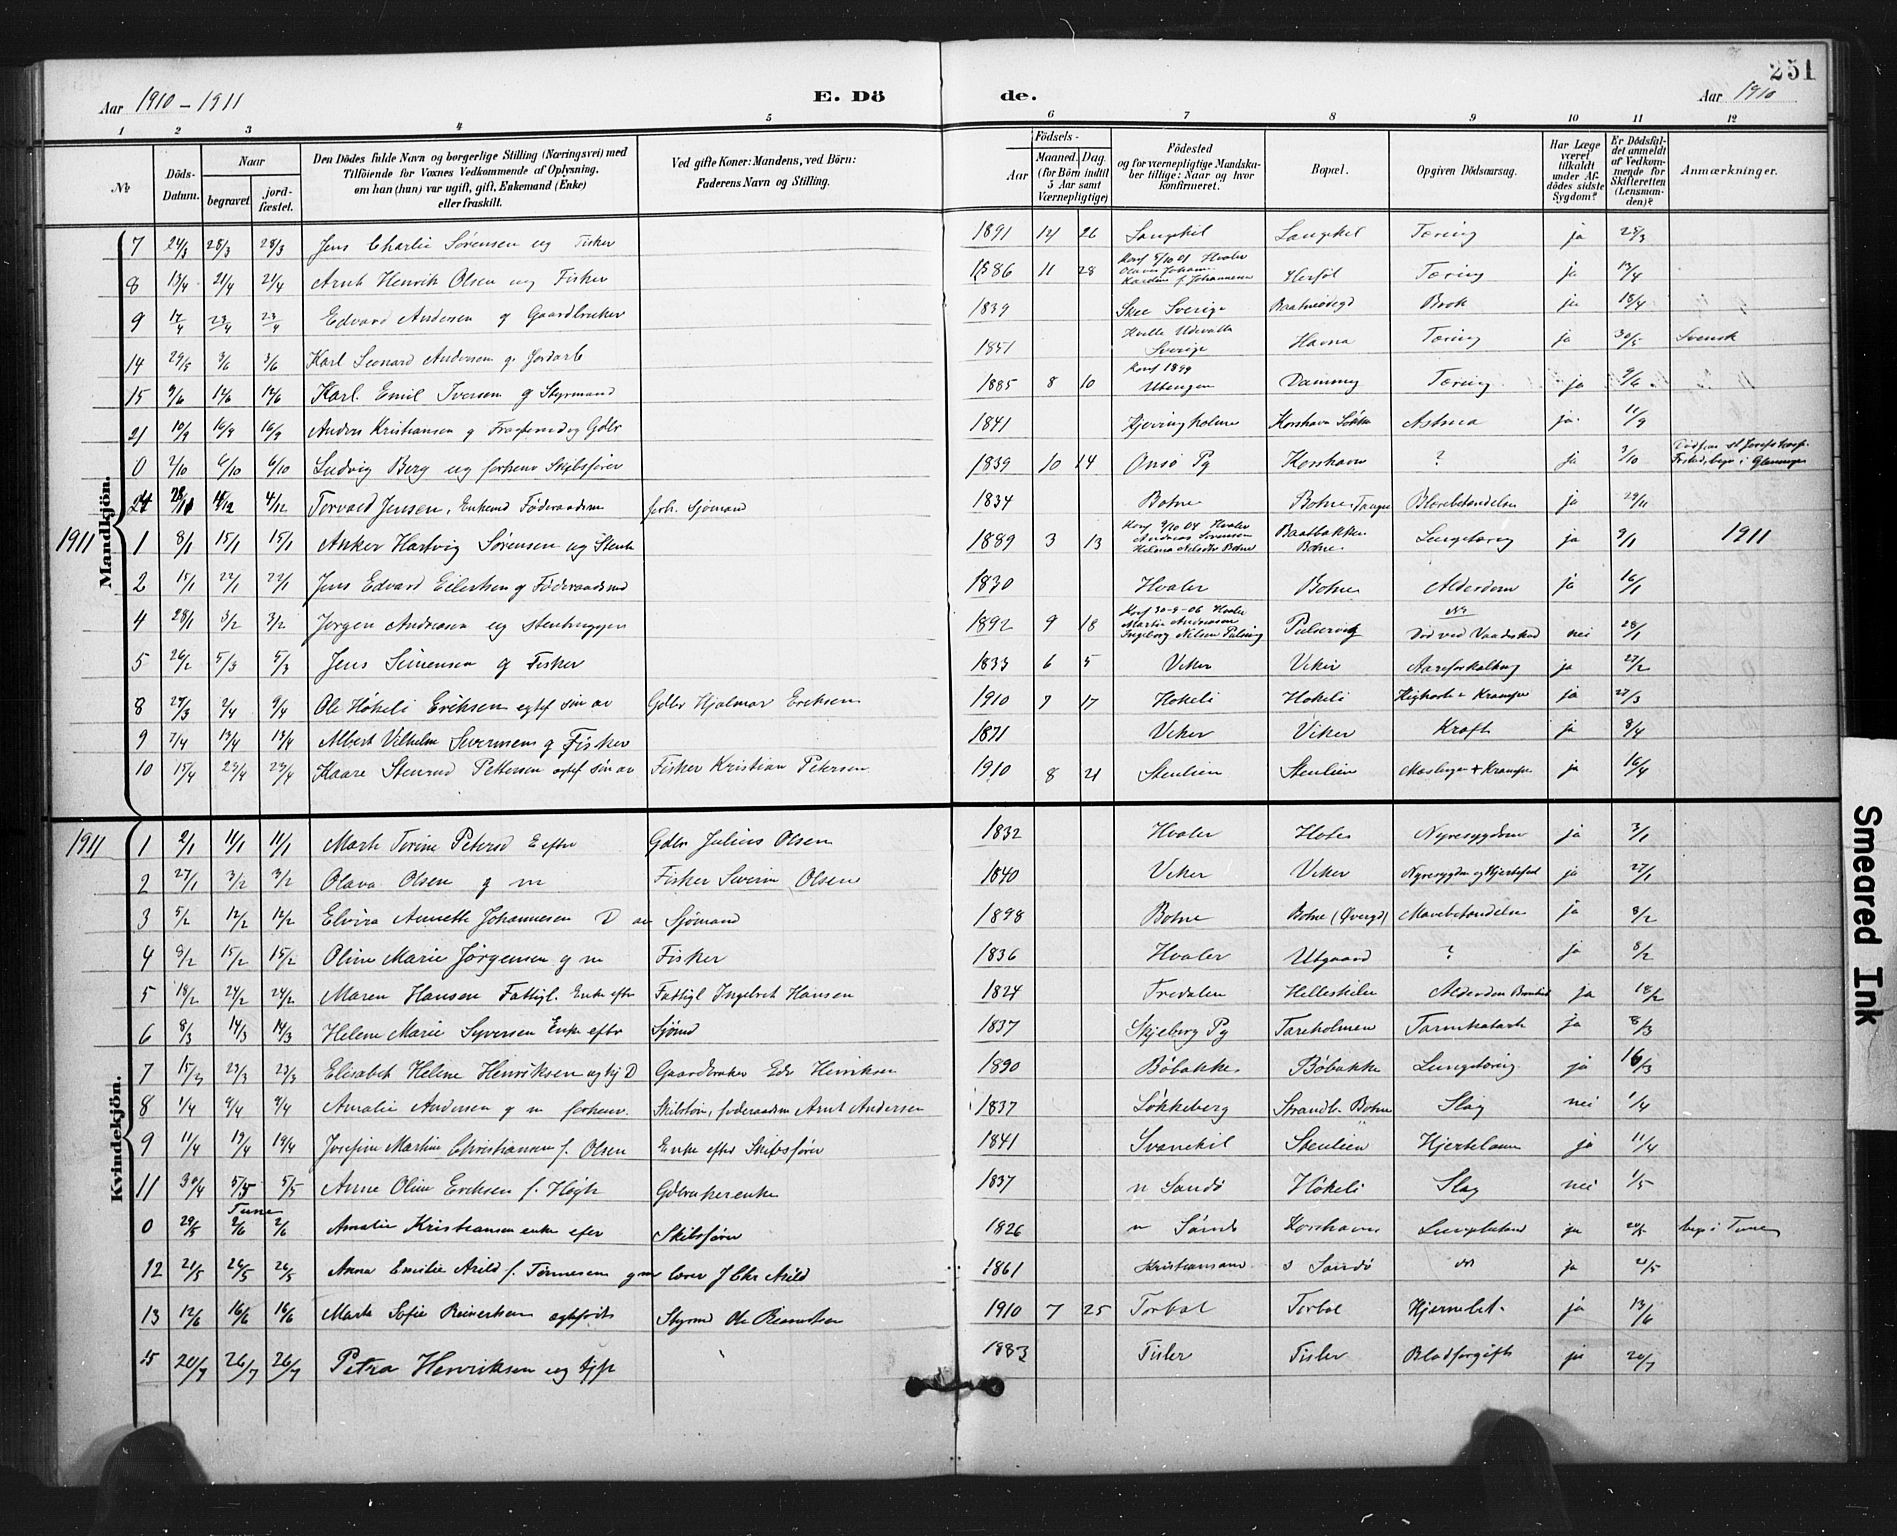 251
Aar 1910 - 1911 E. Dö de. Aar 1910
1 2 3 4 5 6 7 8 9 10 11 12
№ Döds-Datum. Naar begravet jord-fæstet. Den Dödes fulde Navn og borgerlige Stilling (Næringsvei) med Tilföiende for Voxnes Vedkommende af Oplysning, om han (hun) var ugift, gift, Enkemand (Enke) eller fraskilt. Ved gifte Koner: Mandens, ved Börn: Faderens Navn og Stilling. Födsels- Aar Maaned. Dag. (for Börn indtil 5 Aar samt Værnepligtige) Födested og for værnepligtige Mandskaber tillige: Naar og hvor konfirmeret. Bopæl. Opgiven Dödsaarsag. Har Læge været tilkaldt under Afdödes sidste Sygdom? Er Dödsfaldet anmeldt af Vedkommende for Skifteretten (Lensmanden)? Anmærkninger.
Mandkjön.
7 24/3 28/3 28/3 Jens Charlie Sörensen ug Fisker 1891 12 26 Sangkil Sangkil Tæring ja 25/3
8 13/4 21/4 21/4 Arnt Henrik Olsen ug Fisker 1886 11 28 Konf 5/10 01 Hvaler Herføl Tæring ja 13/4
9 17/4 23/4 23/4 Edvard Andersen g Gaardbruker 1839 Skee Sverige Brok ja 18/4
14 29/5 3/6 3/6 Karl Leonard Andersen g. Jordarb 1851 Udevalla Sverige Havna Tæring ja 30/5 Svensk
15 9/6 14/6 14/6 Karl Emil Iversen g Styrmand 1885 8 10 Konf 1899 Utengen Dammyr Tæring ja 9/6
21 10/9 16/9 16/9 Anders Kristiansen g 1841 Kjøringholmen Korshavn Løkke Astma ja 11/9
0 2/10 6/10 6/10 Ludvig Berg ug forhenv Skibsfører 1839 10 14 Onsö Pg Korshavn ? ja 3/10
24 28/11 4/12 4/12 Torvald Jensen, Enkemd Föderaadsm forh. Sjömand 1834 Botne Botne Blærebetændelse ja 29/11
1911 1 8/1 15/1 15/1 Anker Hartvig Sörensen ug Stenh 1889 3 13 Konf 2/10 04 Hvaler Andreas Sörensen Baatbakken Botne Lungetæring ja 9/1 1911
2 15/1 22/1 22/1 Jens Edvard Eilertsen g Föderaadsmd 1830 Hvaler Botne Alderdom ja 16/1
4 28/1 3/2 3/2 Jørgen Andreasen ug stenhugger 1892 9 18 Konf 30-9-06 Hvaler Martin Andreasen Ingeborg Nilsen Pulservig Død ved Vaadeskud nei 28/1
5 26/2 5/3 5/3 Jens Simensen g Fisker 1833 6 5 Viker Viker Aareforkalkning ja 27/2
8 27/3 2/4 9/4 Ole Hökeli Eriksen egtef sön av Gdbr Hjalmar Eriksen 1910 7 17 Hokeli Hokeli Kighoste + Krampe ja 27/3
9 7/4 13/4 13/4 Albert Vilhelm Severinsen g Fisker 1871 Viker Viker Kræft ja 8/4
10 15/4 29/4 29/4 Kaare Stenrud Pettersen egtef sön av Fisker Kristian Petersen 1910 8 21 Stenlien Stenlien Meslinger + Krampe ja 16/4
Kvindekjön.
1911 1 2/1 11/1 11/1 Marte Torine Petersd E efter Gdbr Julius Olsen 1832 Hvaler Holes Nyresygdom ja 3/1
2 27/1 3/2 3/2 Olava Olsen g m Fisker Severin Olsen 1840 Viker Viker Nyresygdm og Hjertefeil ja 27/1
3 5/2 12/2 12/2 Elvira Annette Johannesen D av Sjømand 1898 Botne Botne (Øvergd) Mavebetændelse ja 8/2
4 9/2 15/2 15/2 Oline Marie Jørgensen g m Fisker 1836 Hvaler Utgaard ? ja 8/2
5 18/2 24/2 24/2 Maren Hansen Fattigl. Enke efter Fattigl Ingebret Hansen 1824 Tredalen Helleskilen Alderdom ja 18/2
6 8/3 14/3 14/3 Helene Marie Syversen Enke efter Sjømd 1837 Skjeberg Pg Tareholmen Tarmkatarh ja 8/3
7 15/3 23/3 23/3 Elisabet Heline Henriksen ug hj D Gaardbruker Edv Henriksen 1890 Böbakke Böbakke Lungetæring ja 16/3
8 1/4 9/4 9/4 Amalie Andersen g m forhenv. Skibsförer, föderaadsm Arnt Andersen 1837 Løkkeberg Strandb. Botne Slag nei 1/4
9 11/4 19/4 19/4 Josefine Martine Christiansen f. Olsen Enke efter Skibsfører 1841 Svanekil Stenlien Hjertelam ja 11/4
11 30/4 5/5 5/5 Anne Oline Eriksen f. Høgh Gdbrukerenke 1837 n Sandö Hökeli Slag nei 1/5
0 29/5 Tune 2/6 2/6 Amalie Kristiansen enke efter Skibsfører 1826 n Sandö Korshavn ja begr i Tune
12 21/5 26/5 26/5 Anna Emilie Arild f. Tønnesen g m lærer J Chr Arild 1861 Kristiansand s Sandö ja 21/5
13 12/6 16/6 16/6 Marta Sofie Reinertsen egtefødt Styrmd Ole Reinertsen 1910 7 25 Torbal Torbal Hjernebet. ja 13/6
15 20/7 26/7 26/7 Petra Henriksen ug tjp 1883 Tisler Tisler Blodforgift ja 20/7
Smeared Ink